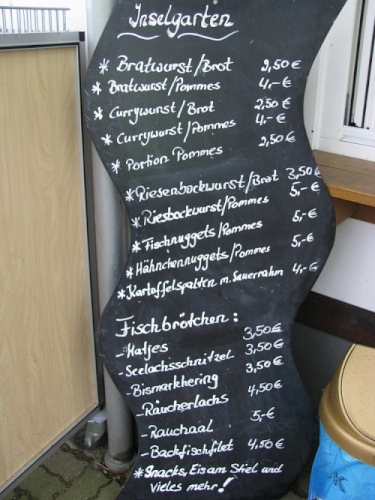 Inselgarten
* Bratwurst/Brot 2,50€
* Bratwurst/Pommes 4,-€
* Currywurst/Brot 2,50€
* Currywurst/Pommes 4,-€
* Portion Pommes 2,50€
* Riesenbockwurst/Brot 3,50€
* Riesbockwurst/Pommes 5,-€
* Fischnuggets/Pommes 5,-€
* Hähnchennuggets/Pommes 5,-€
* Kartoffelspalten m. Sauerrahm 4,-€
Fischbrötchen:
- Matjes 3,50€
- Seelachsschnitzel 3,50€
- Bismarkhering 3,50€
- Räucherlachs 4,50€
- Rauchaal 5,-€
- Backfischfilet 4,50€
* Snacks, Eis am Stiel und
Vieles mehr!